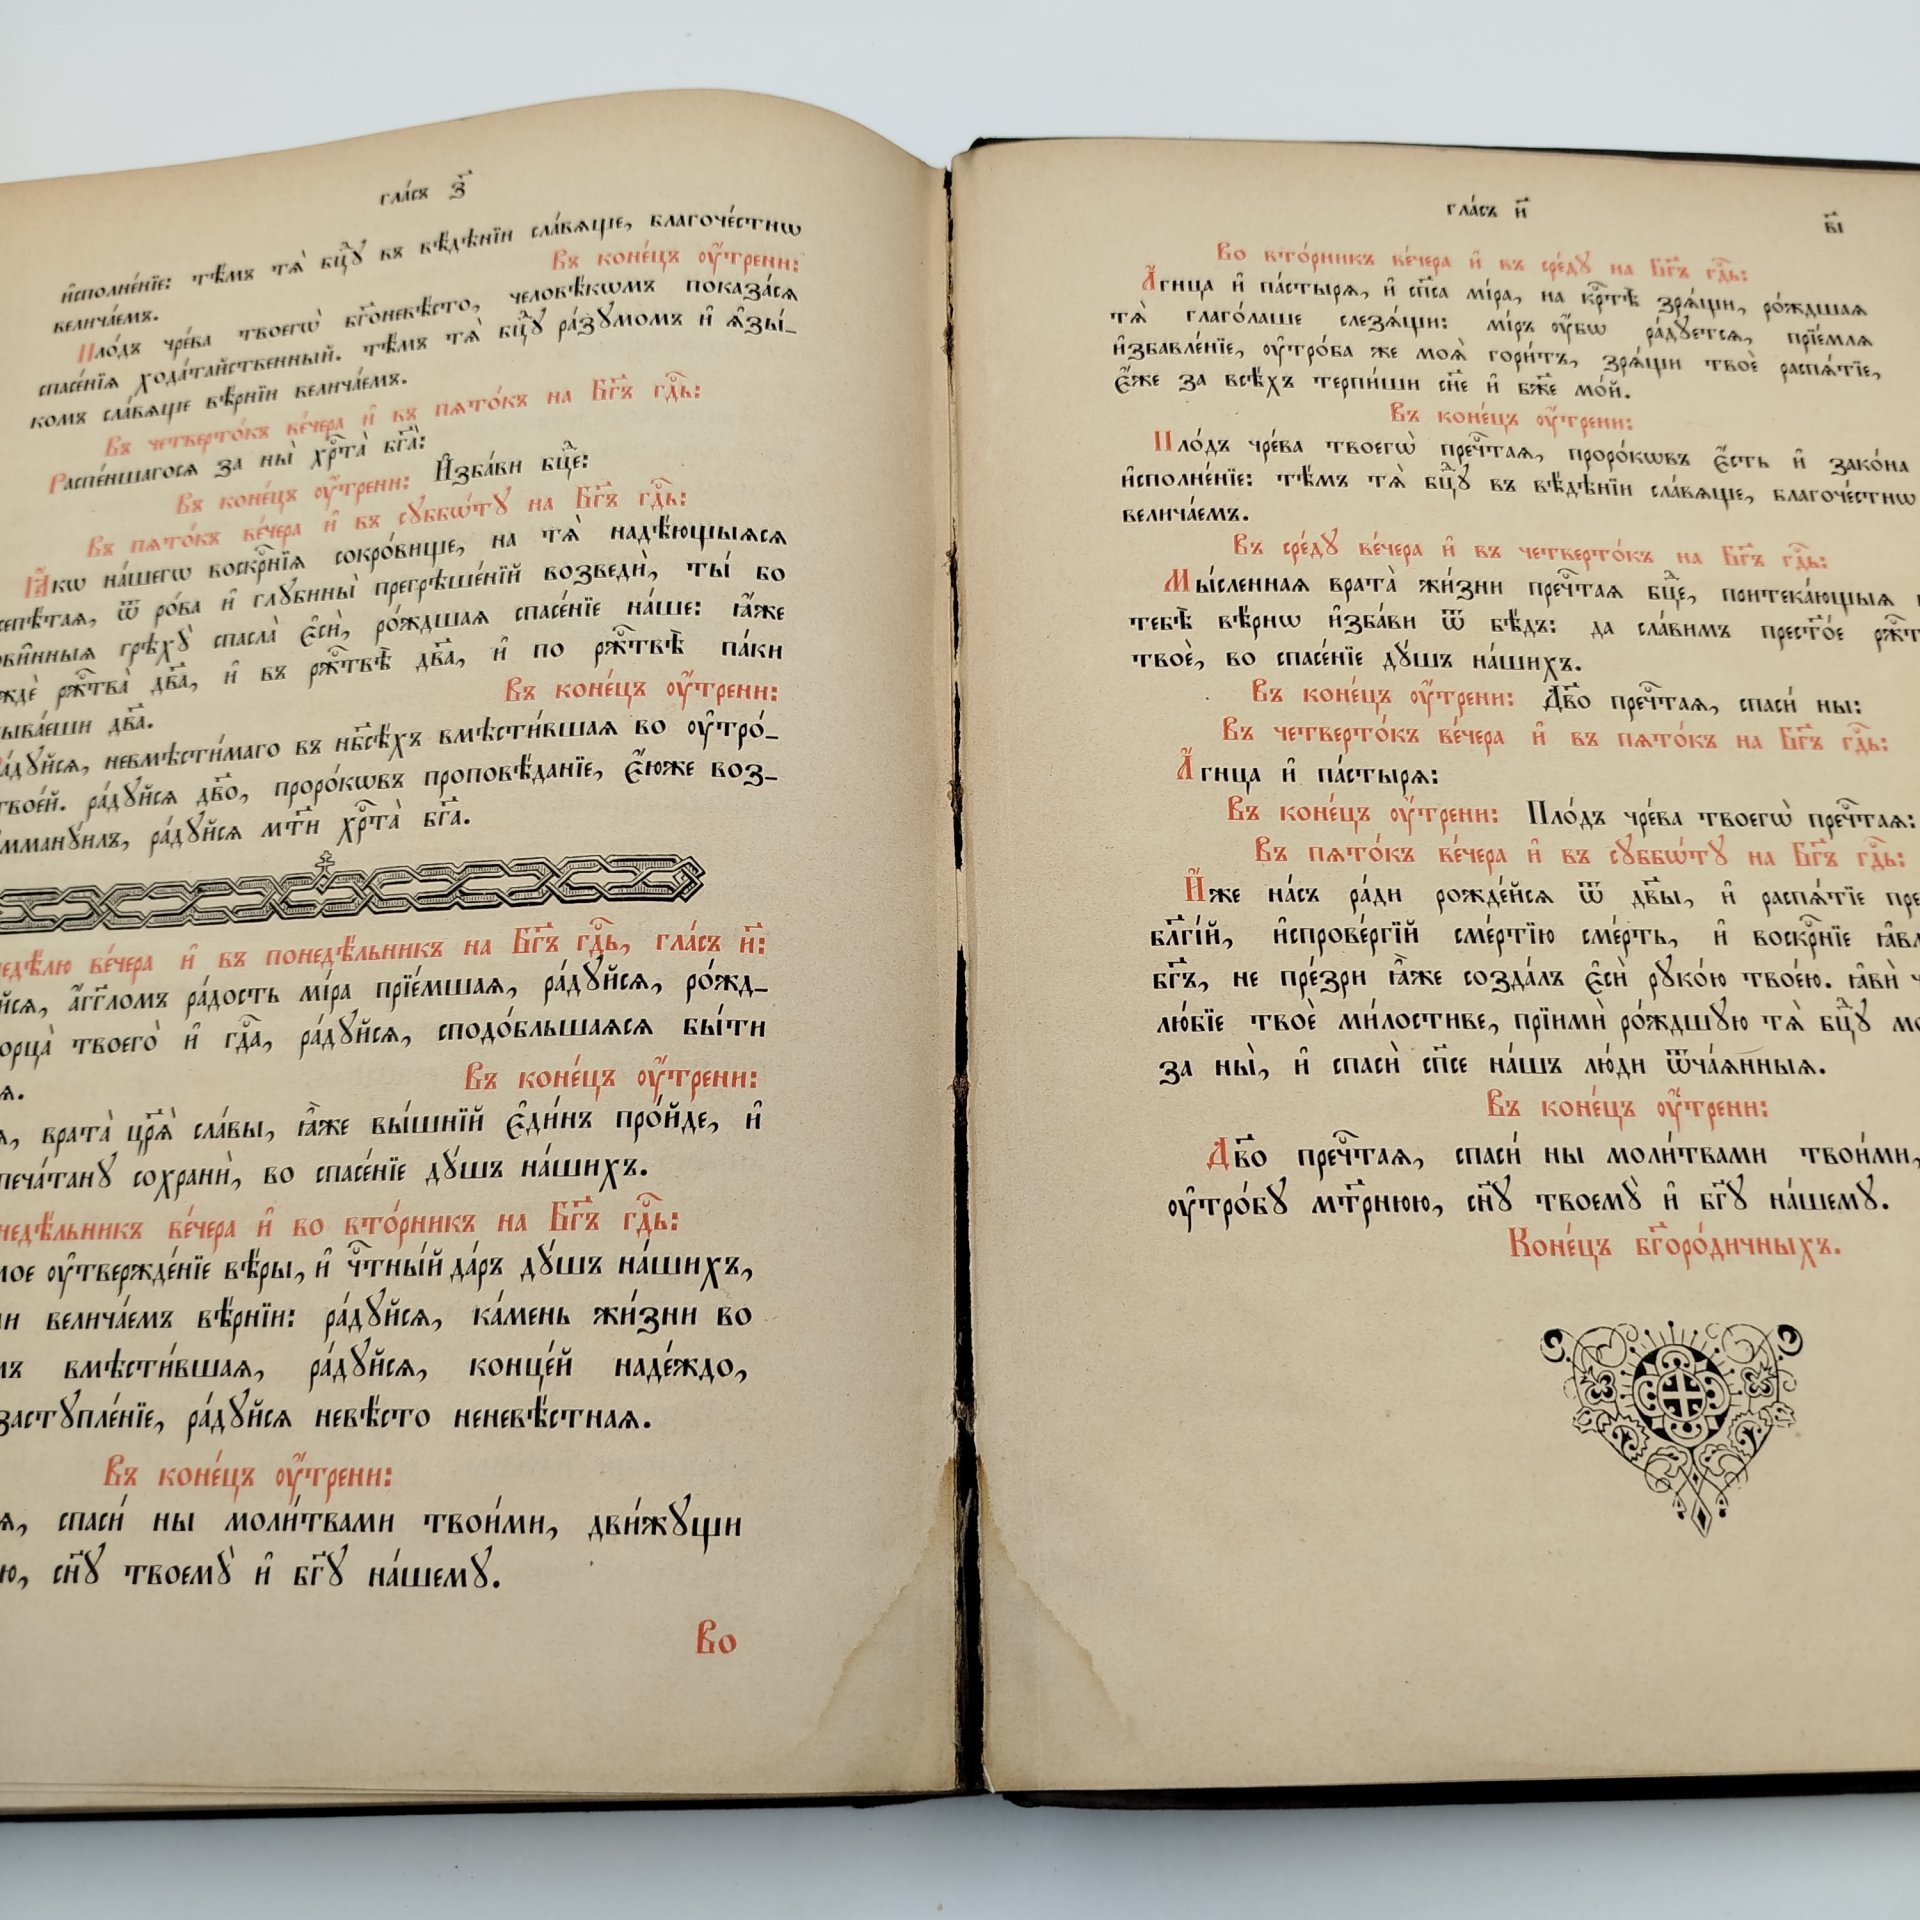 гла́съ з҃
и҆сполне́нїе: тѣ́мъ тѧ̀ бц҃ꙋ въ вѣ́дѣнїи сла́вѧще, благоче́стнѡ
велича́емъ.
Въ коне́цъ ᲂу҆́трени:
Пло́дъ чре́ва твоегѡ̀ бг҃оневѣ́сто, человѣ́кѡмъ показа́сѧ
спасе́нїѧ хода́тайственный. тѣ́мъ тѧ̀ бц҃ꙋ ра́зꙋмомъ и҆ ѧ҆зы́-
комъ сла́вѧще вѣ́рнїи велича́емъ.
Въ четверто́къ ве́чера и҆ въ пѧто́къ на Бг҃ъ гдⷭ҇ь:
Распе́ншагосѧ за ны̀ хрⷭ҇та̀ бг҃а̀:
Въ коне́цъ ᲂу҆́трени: И҆зба́ви бц҃е:
Въ пѧто́къ ве́чера и҆ въ сꙋббѡ́тꙋ на Бг҃ъ гдⷭ҇ь:
Ꙗ҆́кѡ на́шегѡ воскрⷭ҇нїѧ сокро́вище, на тѧ̀ надѣ́ющыѧсѧ
сепѣ́таѧ, ѿ ро́ва и҆ глꙋбины̀ прегрѣше́нїй возведѝ, ты́ бо
ови̑нныѧ грѣхꙋ̀ спасла̀ є҆сѝ, ро́ждшаѧ спасе́нїе на́ше: ꙗ҆́же
ждѐ ржⷭ҇тва̀ дв҃а, и҆ въ ржⷭ҇твѣ̀ дв҃а, и҆ по ржⷭ҇твѣ̀ па́ки
быва́еши дв҃а.
Въ коне́цъ ᲂу҆́трени:
а́дꙋйсѧ, невмѣсти́маго въ нб҃сѣ́хъ вмѣсти́вшаѧ во ᲂу҆тро́-
твое́й. ра́дꙋйсѧ дв҃о, проро́кѡвъ проповѣ́данїе, є҆́юже воз-
ммануи́лъ, ра́дꙋйсѧ мт҃и хрⷭ҇та̀ бг҃а.
недѣ́лю ве́чера и҆ въ понедѣ́льникъ на Бг҃ъ гдⷭ҇ь, гла́съ и҃:
йсѧ, а҆́гг҃ломъ ра́дость мі́ра прїе́мшаѧ, ра́дꙋйсѧ, ро́жд-
орца̀ твоего̀ и҆ гдⷭ҇а, ра́дꙋйсѧ, сподо́бльшаѧсѧ бы́ти
ѧ.
Въ коне́цъ ᲂу҆́трени:
ѧ, врата̀ цр҃ѧ̀ сла́вы, ꙗ҆̀же вы́шнїй є҆ди́нъ про́йде, и҆
печа́танꙋ сохранѝ, во спасе́нїе дꙋ́шъ на́шихъ.
недѣ́льникъ ве́чера и҆ во вто́рникъ на Бг҃ъ гдⷭ҇ь:
мое ᲂу҆твержде́нїе вѣ́ры, и҆ чⷭ҇тны́й да́ръ дꙋ́шъ на́шихъ,
ми велича́емъ вѣ́рнїи: ра́дꙋйсѧ, ка́мень жи́зни во
мъ вмѣсти́вшаѧ, ра́дꙋйсѧ, конце́й наде́ждо,
застꙋпле́нїе, ра́дꙋйсѧ невѣ́сто неневѣ́стнаѧ.
Въ коне́цъ ᲂу҆́трени:
ѧ, спаси́ ны моли́твами твои́ми, дви́жꙋщи
ю, сн҃ꙋ твоемꙋ̀ и҆ бг҃ꙋ на́шемꙋ.
Во
гла́съ и҃
в҃і
Во вто́рникъ ве́чера и҆ въ сре́дꙋ на Бг҃ъ гдⷭ҇ь:
А҆́гнца и҆ па́стырѧ, и҆ сп҃са мі́ра, на крⷭ҇тѣ̀ зрѧ́щи, ро́ждшаѧ
тѧ̀ глаго́лаше слезѧ́щи: мі́ръ ᲂу҆́бѡ ра́дꙋетсѧ, прїе́млѧ
и҆збавле́нїе, ᲂу҆тро́ба же моѧ̀ гори́тъ, зрѧ́щи твоѐ распѧ́тїе,
є҆́же за всѣ́хъ терпи́ши сн҃е и҆ бж҃е мо́й.
Въ коне́цъ ᲂу҆́трени:
Пло́дъ чре́ва твоегѡ̀ пречⷭ҇таѧ, проро́кѡвъ є҆́сть и҆ зако́на
и҆сполне́нїе: тѣ́мъ тѧ̀ бц҃ꙋ въ вѣ́дѣнїи сла́вѧще, благоче́стнѡ
велича́емъ.
Въ сре́дꙋ ве́чера и҆ въ четверто́къ на Бг҃ъ гдⷭ҇ь:
Мы́сленнаѧ врата̀ жи́зни пречⷭ҇таѧ бц҃е, притека́ющыѧ
тебѣ̀ вѣ́рнѡ и҆зба́ви ѿ бѣ́дъ: да сла́вимъ прест҃о́е ржⷭ҇т
твоѐ, во спасе́нїе дꙋ́шъ на́шихъ.
Въ коне́цъ ᲂу҆́трени: Дв҃о пречⷭ҇таѧ, спаси́ ны:
Въ четверто́къ ве́чера и҆ въ пѧто́къ на Бг҃ъ гдⷭ҇ь:
А҆́гнца и҆ па́стырѧ:
Въ коне́цъ ᲂу҆́трени: Пло́дъ чре́ва твоегѡ̀ пречⷭ҇таѧ:
Въ пѧто́къ ве́чера и҆ въ сꙋббѡ́тꙋ на Бг҃ъ гдⷭ҇ь:
И҆́же на́съ ра́ди рожде́йсѧ ѿ дв҃ы, и҆ распѧ́тїе пре
бл҃гі́й, и҆спрове́ргїй сме́ртїю сме́рть, и҆ воскрⷭ҇нїе ꙗ҆вл
бг҃ъ, не пре́зри ꙗ҆̀же созда́лъ є҆сѝ рꙋко́ю твое́ю. ꙗ҆вѝ ч
лю́бїе твоѐ ми́лостиве, прїимѝ ро́ждшꙋю тѧ̀ бц҃ꙋ мо
за ны̀, и҆ спасѝ сп҃се на́шъ лю́ди ѿча́ѧнныѧ.
Въ коне́цъ ᲂу҆́трени:
Дв҃о пречⷭ҇таѧ, спаси́ ны моли́твами твои́ми,
ᲂу҆тро́бꙋ мт҃рнюю, сн҃ꙋ твоемꙋ̀ и҆ бг҃ꙋ на́шемꙋ.
Коне́цъ бг҃оро́дичныхъ.